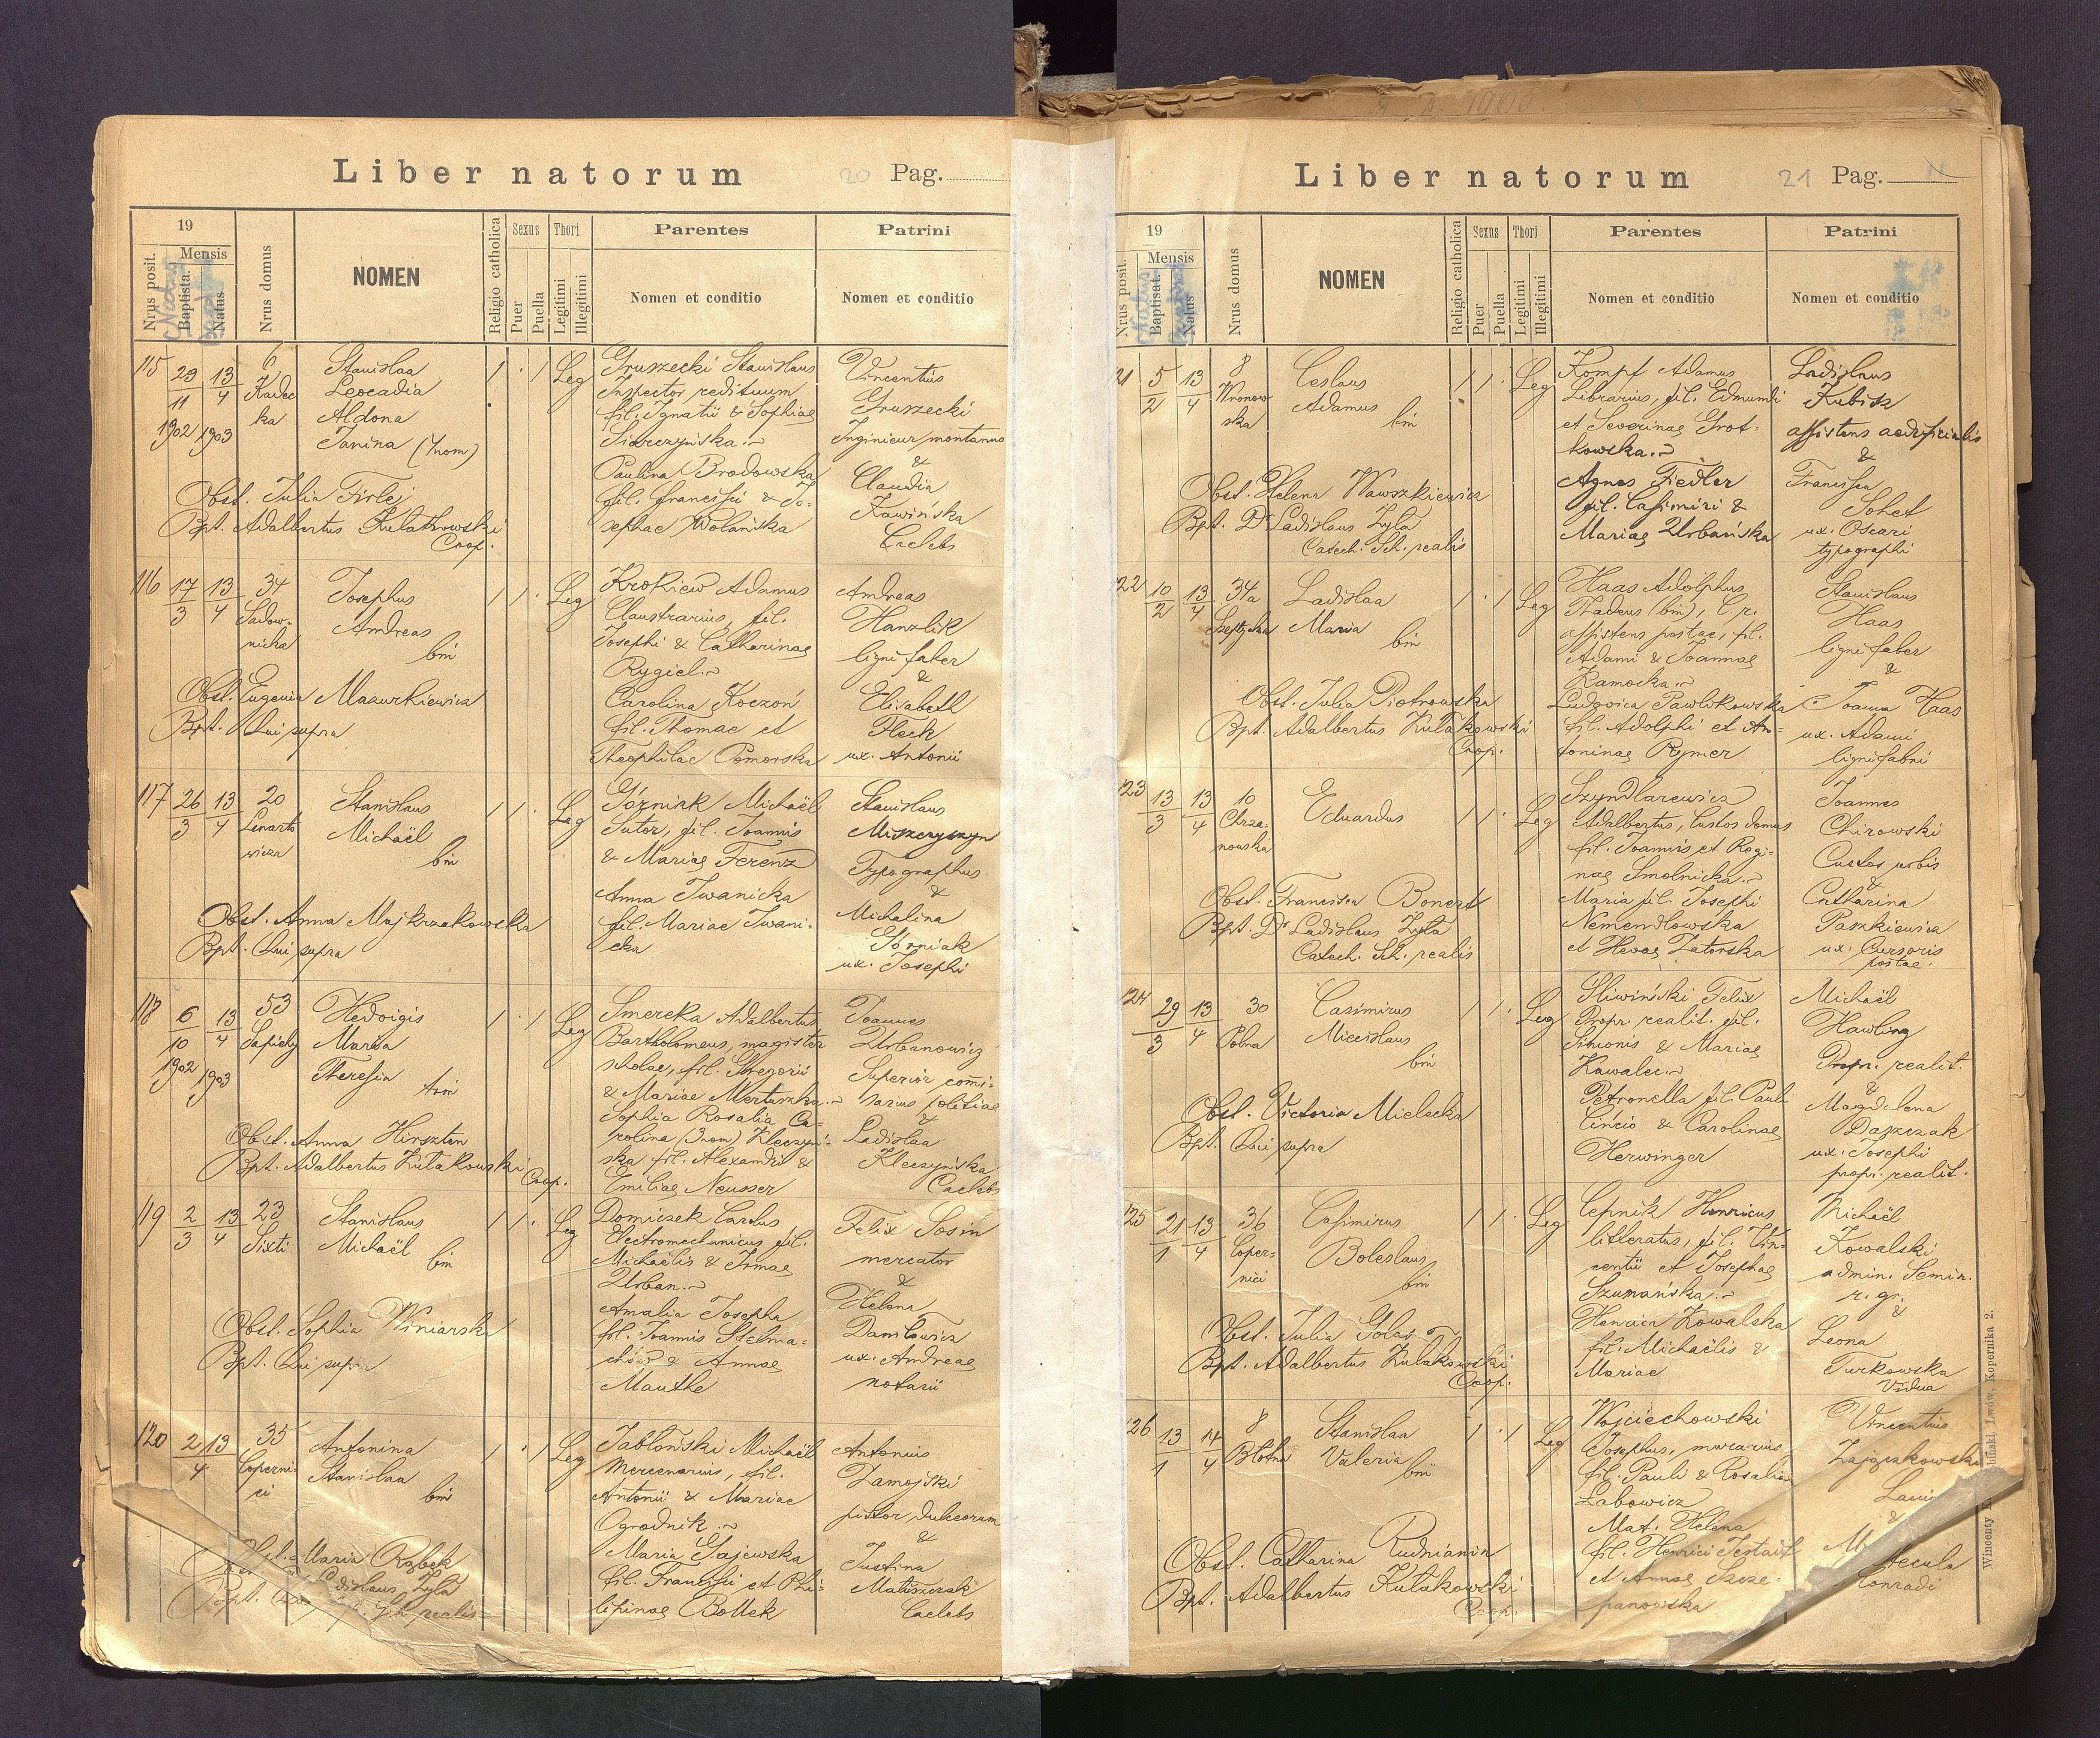 Liber natorum 20 Pag.
19
Mensis
Nrus posit.
Baptista.
Natus
Nrus domus
NOMEN
Religio catholica
Sexus
Puer
Puella
Thori
Legitimi
Illegitimi
Parentes
Nomen et conditio
Patrini
Nomen et conditio
115 29 13 6 Stanislaa 1 · 1 Leg Gruszecki Stanislaus Vincentius
11 4 Kadec Leocadia Inspector redituum Gruszecki
1902 1903 ka Aldona fil. Ignatii & Sophiae Inginieur montanus
Janina (4nom) &
Paulina Brodowska Claudia
Obst. Julia Tirle fil. Francisci & Jo- Kawińska
Bpt. Adalbertus Kulakowski sephae Wolańska Caelebs
Coop.
116 17 13 34 Josephus 1 1 · Leg Krokiew Adamus Andreas
3 4 Sadow- Andreas Claustrarius, fil. Hanzlik
nicka bin Josephi & Catharinae ligni faber
Rygiel &
Obst. Eugenia Mazurkiewicz Carolina Koczoń Elisabeth
Bpt. Qui supra fil. Thomae et Fleck
Theophilae Pomorska ux. Antonii
117 26 13 20 Stanislaus 1 1 · Leg Górniak Michaël Stanislaus
3 4 Lenarto Michaël Sutor, fil. Joannis Miszczyszyn
wicza bin & Mariae Ferenz Typographus
Anna Iwanicka &
Obst. Anna Majkrzakowska fil. Mariae Iwani- Michalina
Bpt. Qui supra cka Górniak
ux. Josephi
118 6 13 53 Hedvigis 1 · 1 Leg Smereka Adalbertus Joannes
10 4 Sapiehy Maria Bartholomeus, magister Urbanowicz
1902 1903 Theresia scholae, fil. Gregorii Superior comi-
trin & Mariae Mertuszka sarius politiae
Sophia Rosalia Ca- &
Obst. Anna Hirszten rolina (3nom) Kleczyń- Ladislaa
Bpt. Adalbertus Kulakowski ska fil. Alexandri & Kleczyńska
Coop. Emiliae Neusser Caelebs
119 2 13 23 Stanislaus 1 1 · Leg Domiczek Carolus Felix Sosin
3 4 Sixti Michaël Electromechanicus fil. mercator
bin Michaëlis & Irmae &
Urban Helena
Obst. Sophia Winiarska Amalia Josepha Daniłowicz
Bpt. Qui supra fil. Joannis Stelma- ux. Andreae
chów & Annae notarii
Mauthe
120 2 13 35 Antonina 1 · 1 Leg Jabloński Michaël Antonius
4 Coperni- Stanislaa Mercenarius, fil. Zamojski
ci bin Antonii & Mariae pistor dulceorum
Ogrodnik &
Maria Rzbek Maria Gajewska Justina
Ladislaus Zyla fil. Francisci et Phi- Matuszczak
Bpt. Sch. realis lipinae Bollek Caelebs
Liber natorum 21 Pag.
19
Mensis
Nrus posit.
Baptisat.
Natus
Nrus domus
NOMEN
Religio catholica
Sexus
Puer
Puella
Thori
Legitimi
Illegitimi
Parentes
Nomen et conditio
Patrini
Nomen et conditio
21 5 13 8 Ceslaus 1 1 · Leg Kompf Adamus Ladislaus
2 4 Wronow Adamus Librarius, fil. Edmundi Kubisz
ska bin et Severinae Grot- assistens aedificialis
kowska &
Obst. Helena Wawszkiewicz Agnes Fiedler Francisca
Bpt. Dr Ladislaus Zyla fil. Casimiri & Sohet
Catech. Sch. realis Mariae Urbańska ux. Oscari
typographi
22 10 13 34a Ladislaa 1 · 1 Leg Haas Adolphus Stanislaus
2 4 Szeptycka Maria Thadeus (bin), C. r. Haas
bin assistens postae, fil. ligni faber
Adami & Joannae &
Ramocka
Obst. Julia Piotrowska Ludovica Pawlikowska Joanna Haas
Bpt. Adalbertus Kulakowski fil. Adolphi et An- ux. Adami
Coop. toninae Rymer ligni fabri
123 13 13 10 Eduardus 1 1 · Leg Szyndlarewicz Joannes
3 4 Chrza- Adalbertus, Custos domus Chirowski
nowska fil. Joannis et Regi- Custos urbis
nae Smolnicka &
Obst. Francisca Bonert Maria fil. Josephi Catharina
Bpt. Dr Ladislaus Zyla Nemendlowska Paszkiewicz
Catech. Sch. realis et Hevae Zatorska ux. Cursoris
postae
124 29 13 30 Casimirus 1 1 · Leg Sliwiński Felix Michaël
3 4 Polna Miecislaus Propr. realit. fil. Hawling
bin Simonis & Mariae Propr. realit.
Kawalec &
Obst. Victoria Mielecka Petronella fil. Pauli Magdalena
Bpt. Qui supra Cincio & Carolinae Dajczak
Herwinger ux. Josephi
propr. realit.
125 21 13 36 Casimirus 1 1 · Leg Cepnik Henricus Michaël
1 4 Coper- Boleslaus litteratus, fil. Vin- Kowalski
nici bin centii et Josephae admin. Semin.
Szumańska r. gr.
Obst. Julia Golas Henrica Kowalska &
Bpt. Adalbertus Kulakowski fil. Michaëlis & Leona
Coop. Mariae Turkowska
Vidua
126 13 14 8 Stanislaa 1 · 1 Leg Wojciechowski Vincentius
1 4 Blotna Valeria Josephus, murarius Zajączkowski
bin fil. Pauli & Rosaliae
Labowicz
Mat. Helena
Obst. Catharina Rudnianin fil. Henrici
Bpt. Adalbertus Kulakowski et Annae Szcze- Conradi
Coop. panowska
Lwów, Kopernika 2.
Wincenty